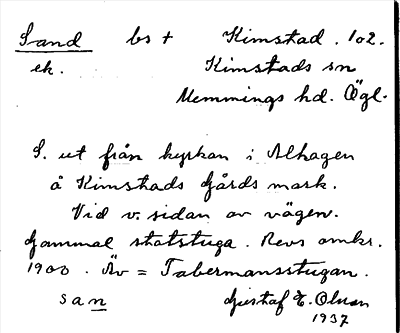 Sand bs + Kimstad. 102.
ek. Kimstads sn
Memmings hd. Ögl.
S. ut från kyrkan i Alhagen
å Kimstads gårds mark.
Vid v. sidan av vägen.
Gammal statstuga. Revs omkr.
1900. Äv = Tabermansstugan.
san Gustaf E. Olsson
1937